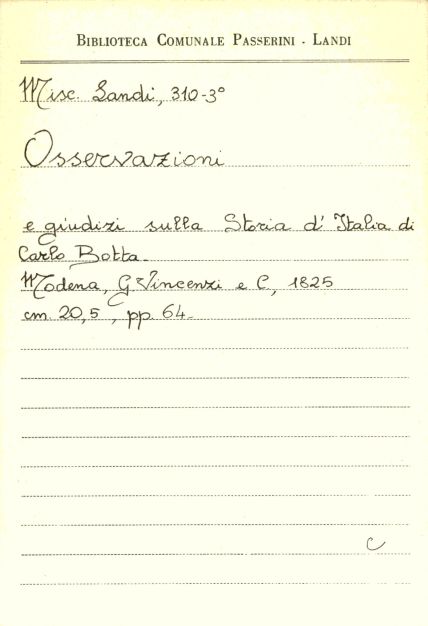 BIBLIOTECA COMUNALE PASSERINI - LANDI
Misc. Landi, 310-3°
Osservazioni
e giudizi sulla Storia d' Italia di
Carlo Botta.
Modena, G Vincenzi e C, 1825
cm. 20,5, pp. 64.
C